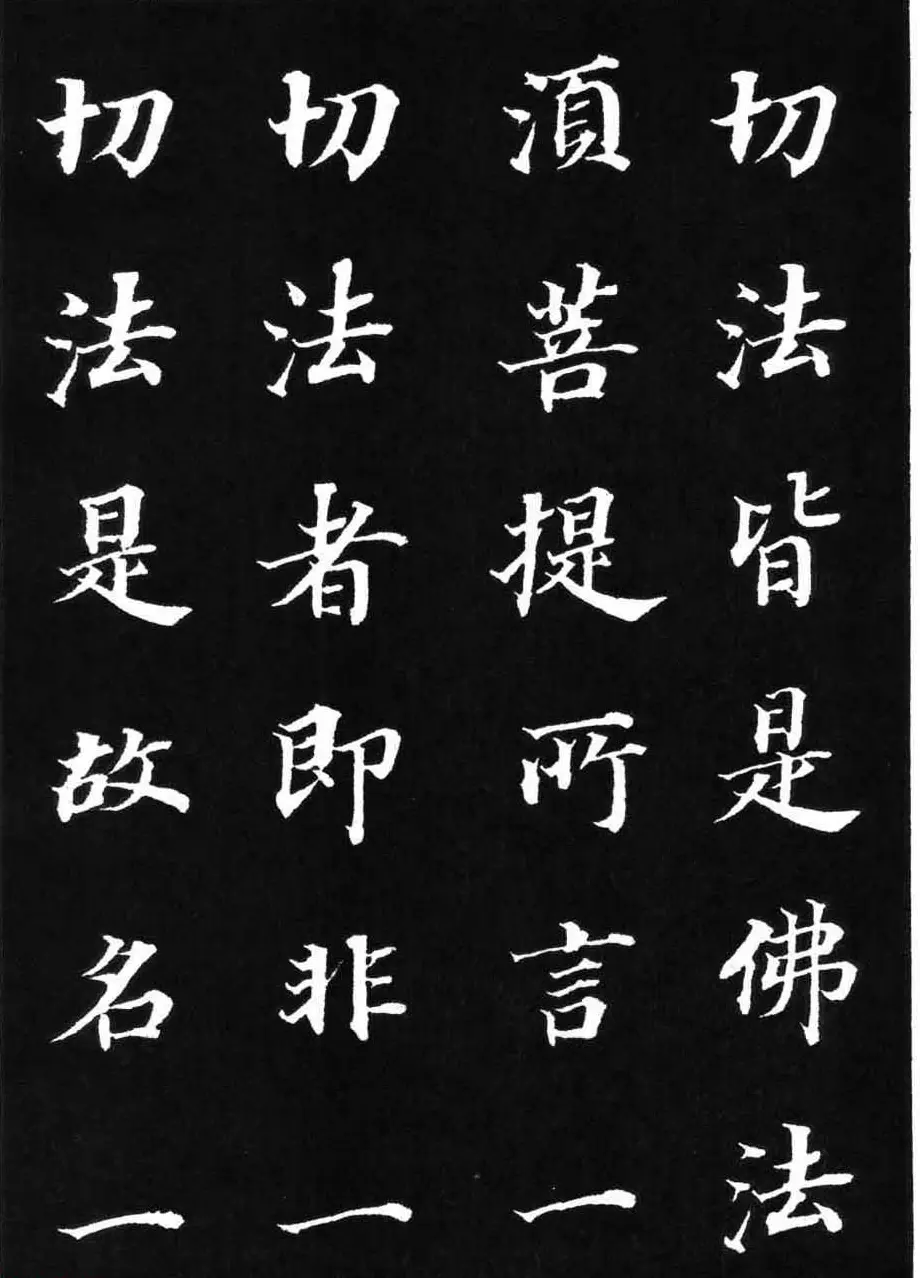 切法皆是佛法
湏菩提所言一
切法者即非一
切法是故名一